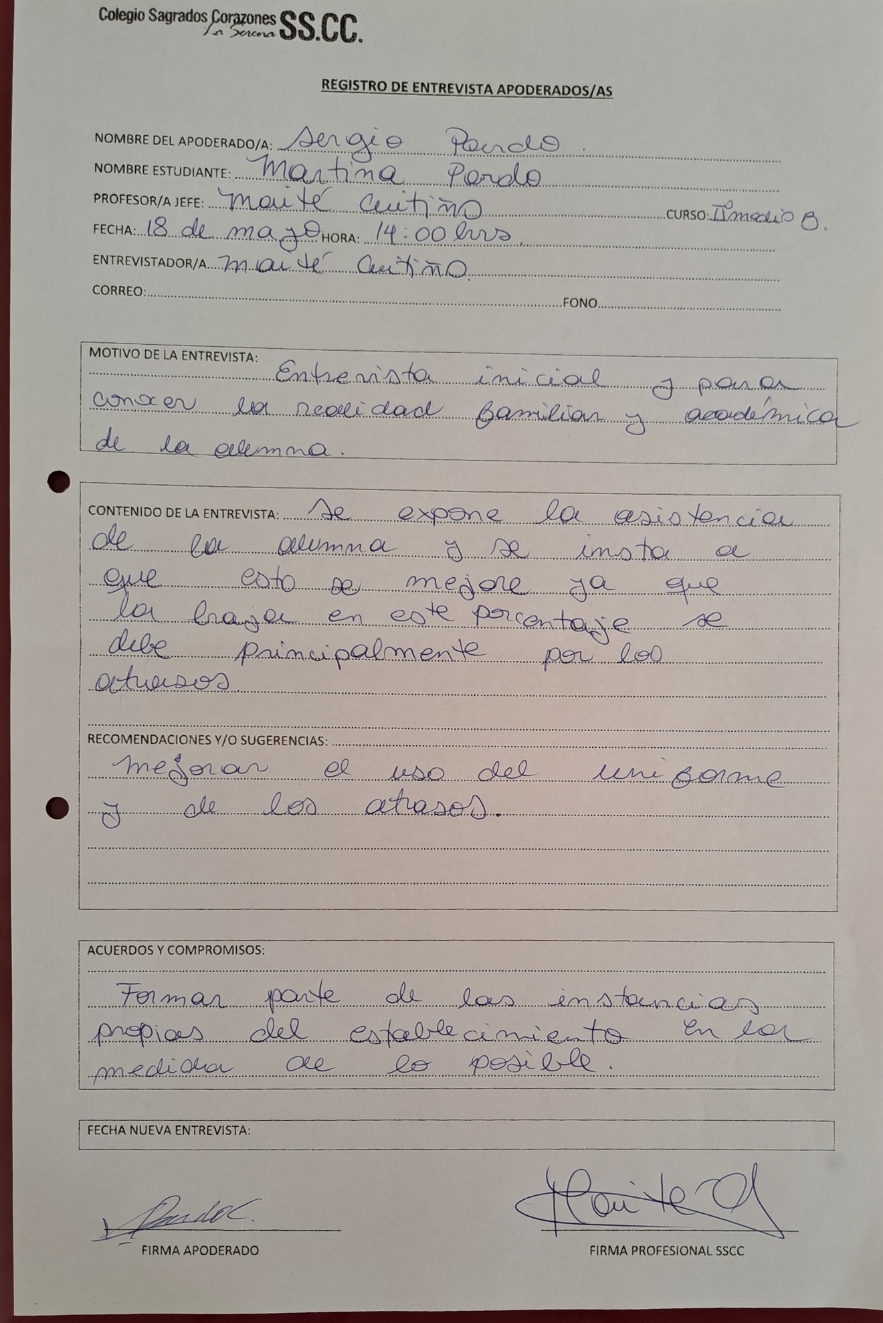 Colegio Sagrados Corazones SS.CC.
La Serena
REGISTRO DE ENTREVISTA APODERADOS/AS
NOMBRE DEL APODERADO/A: Sergio Pardo.
NOMBRE ESTUDIANTE: Martina Pardo
PROFESOR/A JEFE: Maité Cutiño CURSO: IIº medio B.
FECHA: 18 de mayo HORA: 14:00 hrs
ENTREVISTADOR/A Maité Cutiño.
CORREO: FONO
MOTIVO DE LA ENTREVISTA:
Entrevista inicial y para
conocer la realidad familiar y académica
de la alumna.
CONTENIDO DE LA ENTREVISTA: Se expone la asistencia
de la alumna y se insta a
que esto se mejore ya que
la baja en este porcentaje se
debe principalmente por los
atrasos.
RECOMENDACIONES Y/O SUGERENCIAS:
Mejorar el uso del uniforme
y de los atrasos.
ACUERDOS Y COMPROMISOS:
Formar parte de las instancias
propias del establecimiento en la
medida de lo posible.
FECHA NUEVA ENTREVISTA:
PardoC.
FIRMA APODERADO FIRMA PROFESIONAL SSCC